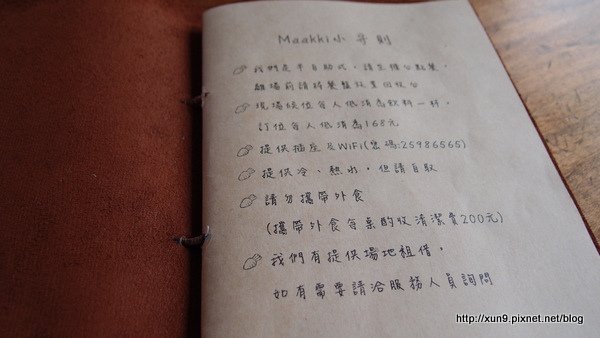 Maakki小守則
我們是半自助式，請至櫃台點餐，
離場前請將餐盤放置回收台
現場候位每人低消為飲料一杯，
訂位每人低消為168元
提供插座及WiFi(密碼:25986565)
提供冷、熱水，但請自取
請勿攜帶外食
(攜帶外食每桌酌收清潔費200元)
我們有提供場地租借，
如有需要請洽服務人員詢問
http://xun9.pixnet.net/blog